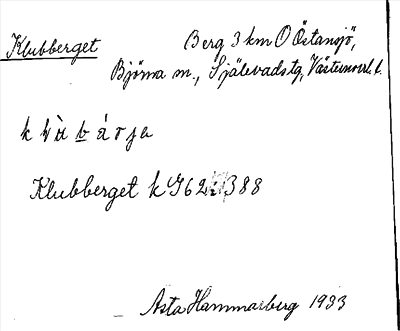 Klubberget Berg 3 km O Östansjö,
Björna sn., Själevads tg, Västernorrl. l.
Klubberget k G 62 388
Asta Hammarberg 1933